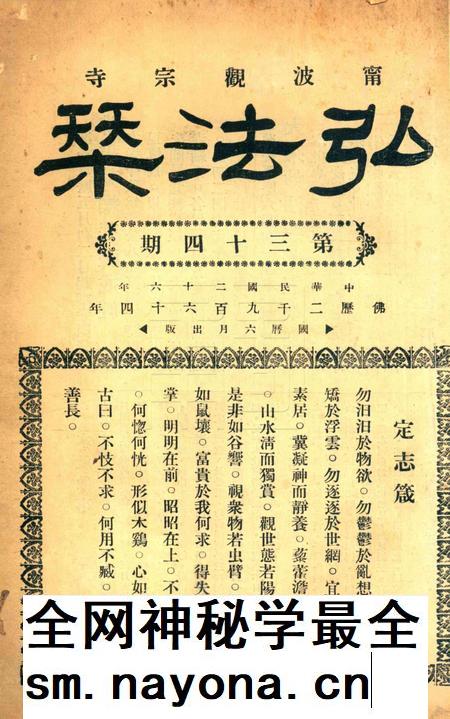 甯波觀宗寺
弘法栞
第三十四期
中華民國二十六年
佛歷二千九百六十四年
國曆六月出版
定志箴
勿汩汩於物欲。勿鬱鬱於亂想
矯於浮雲。勿逐逐於世網。宜
素居。冀凝神而靜養。藜藿澹
。山水淸而獨賞。觀世態若陽
是非如谷響。視衆物若虫臂。
如鼠壤。富貴於我何求。得失
掌。明明在前。昭昭在上。不
。何惚何恍。形似木鷄。心如
古曰。不忮不求。何用不臧。
善長。
全网神秘学最全
sm.nayona.cn